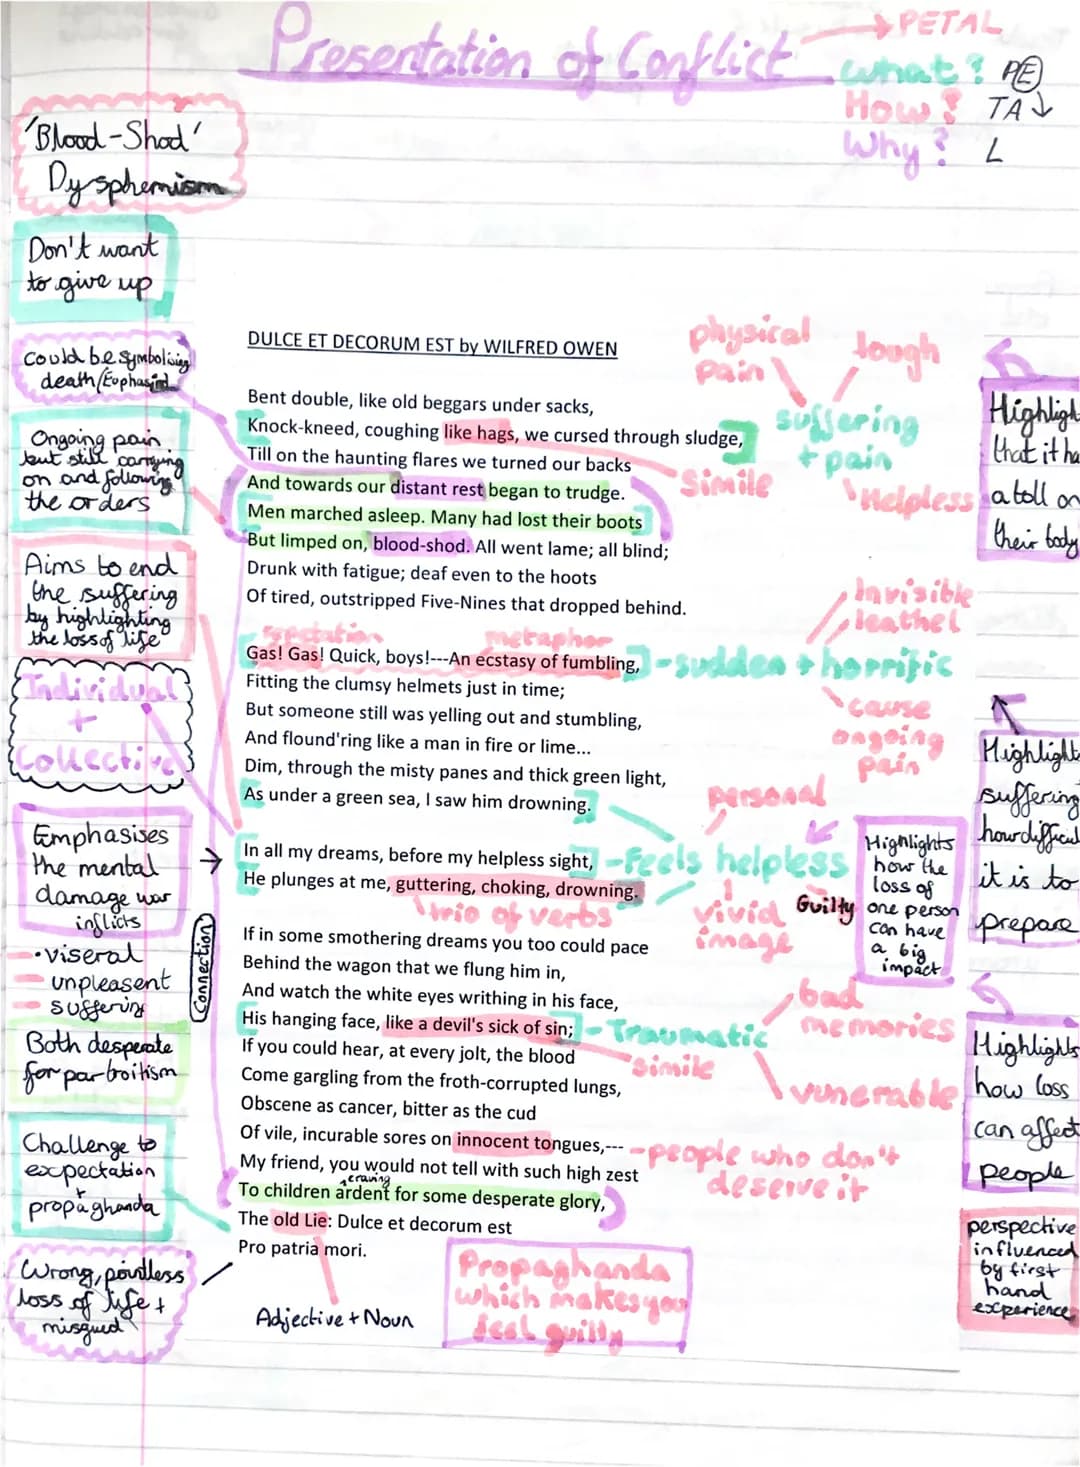 Presentation of Conflict
PETAL
What? PE
How? TA
Why? L
'Blood-Shod'
Dysphemism
Don't want
to give up
Could be symbolising
death/Euphasism
Ongoing pain
but still carrying
on and following
the orders
Aims to end
the suffering
by highlighting
the loss of life
Individual
+
Collective
Emphasises
the mental
damage war
inflicts
• viseral
unpleasent
suffering
Connection
Both desperate
for parboitism
Challenge to
expectation
+
propaghanda
Wrong, pointless
loss of life +
misgued
DULCE ET DECORUM EST by WILFRED OWEN
Bent double, like old beggars under sacks,
Knock-kneed, coughing like hags, we cursed through sludge,
Till on the haunting flares we turned our backs
And towards our distant rest began to trudge.
Men marched asleep. Many had lost their boots
But limped on, blood-shod. All went lame; all blind;
Drunk with fatigue; deaf even to the hoots
Of tired, outstripped Five-Nines that dropped behind.
metaphor
Gas! Gas! Quick, boys!---An ecstasy of fumbling,
Fitting the clumsy helmets just in time;
But someone still was yelling out and stumbling,
And flound'ring like a man in fire or lime...
Dim, through the misty panes and thick green light,
As under a green sea, I saw him drowning.
In all my dreams, before my helpless sight,
He plunges at me, guttering, choking, drowning.
trio of verbs
If in some smothering dreams you too could pace
Behind the wagon that we flung him in,
And watch the white eyes writhing in his face,
His hanging face, like a devil's sick of sin;
If you could hear, at every jolt, the blood
Come gargling from the froth-corrupted lungs,
Obscene as cancer, bitter as the cud
Of vile, incurable sores on innocent tongues,---
My friend, you would not tell with such high zest
craving
To children ardent for some desperate glory,
The old Lie: Dulce et decorum est
Pro patria mori.
Adjective + Noun
Propaghanda
which makes you
feel guilty
physical
pain
tough
suffering
+ pain
Simile
Helpless
Invisible
leathel
- sudden + horrific
cause
ongoing
pain
personal
- Feels helpless
vivid
image
Guilty
Highlights
how the
loss of
one person
can have
a big
impact
- Traumatic
bad
memories
simile
vunerable
- people who don't
deserve it
Highlight
that it ha
a toll on
their body
Highlight
suffering
how difficul
it is to
prepare
Highlights
how loss
can affect
people
perspective
influenced
by first
hand
experience